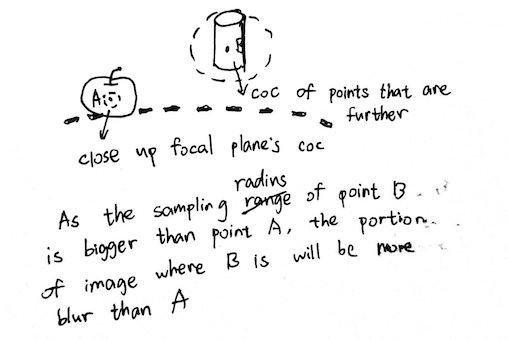 B
A
coc of points that are
further
close up focal plane's coc
radius
As the sampling range of point B
is bigger than point A, the portion
of image where B is will be more
blur than A